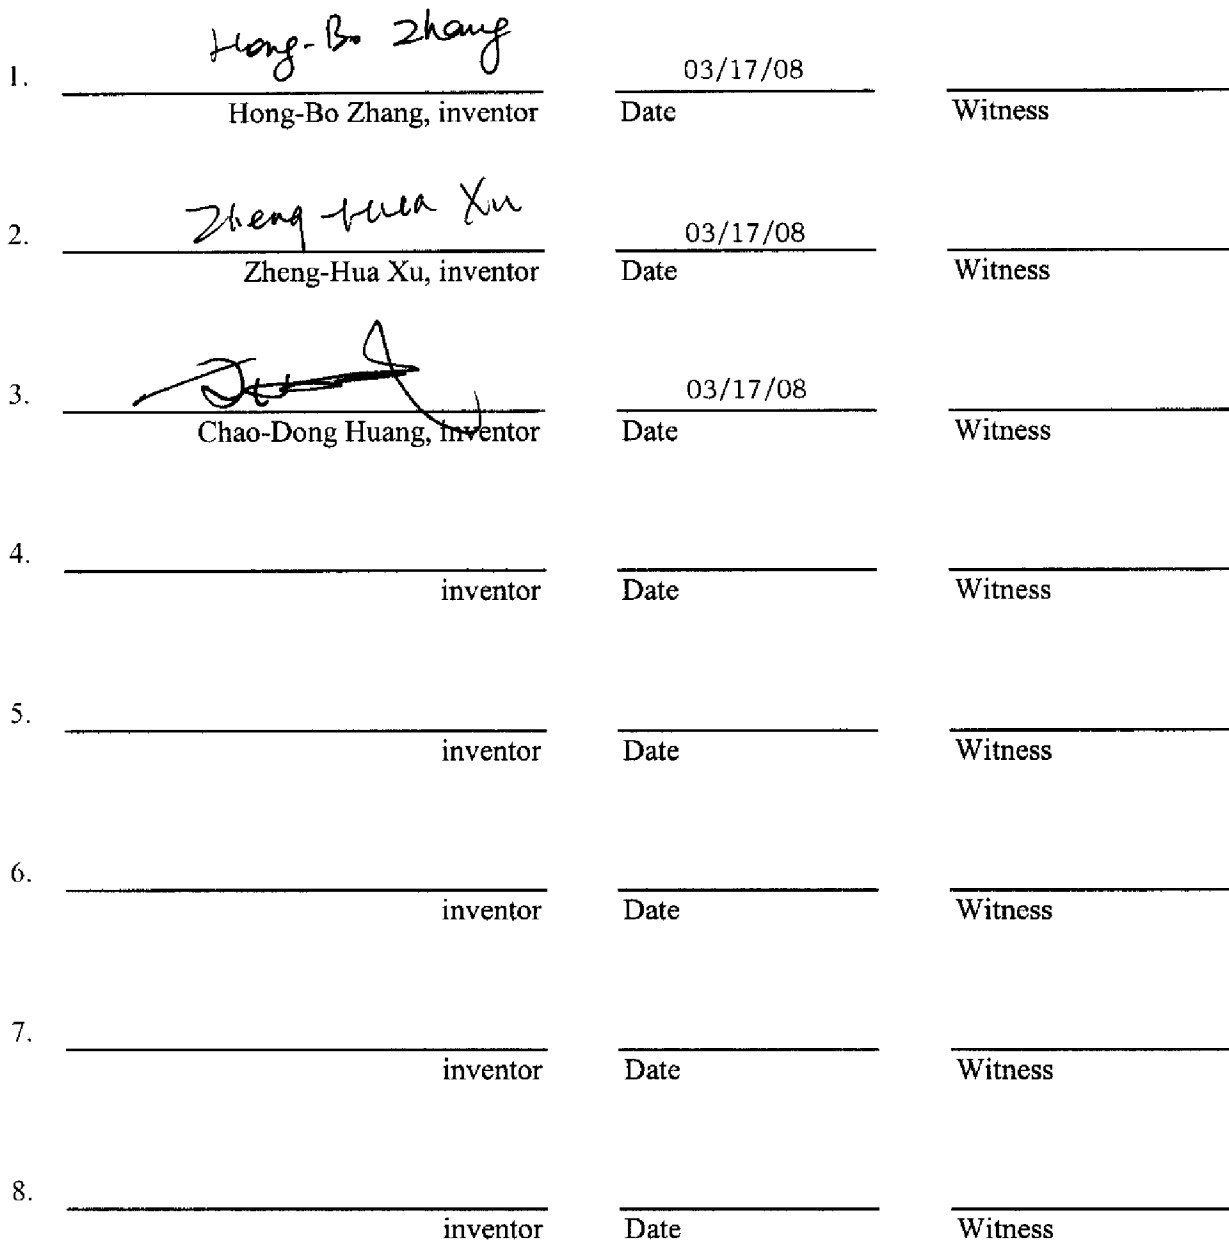 Hong-Bo Zhang
1. 03/17/08
Hong-Bo Zhang, inventor Date Witness
Zheng-Hua Xu
2. 03/17/08
Zheng-Hua Xu, inventor Date Witness
3. 03/17/08
Chao-Dong Huang, inventor Date Witness
4.
inventor Date Witness
5.
inventor Date Witness
6.
inventor Date Witness
7.
inventor Date Witness
8.
inventor Date Witness